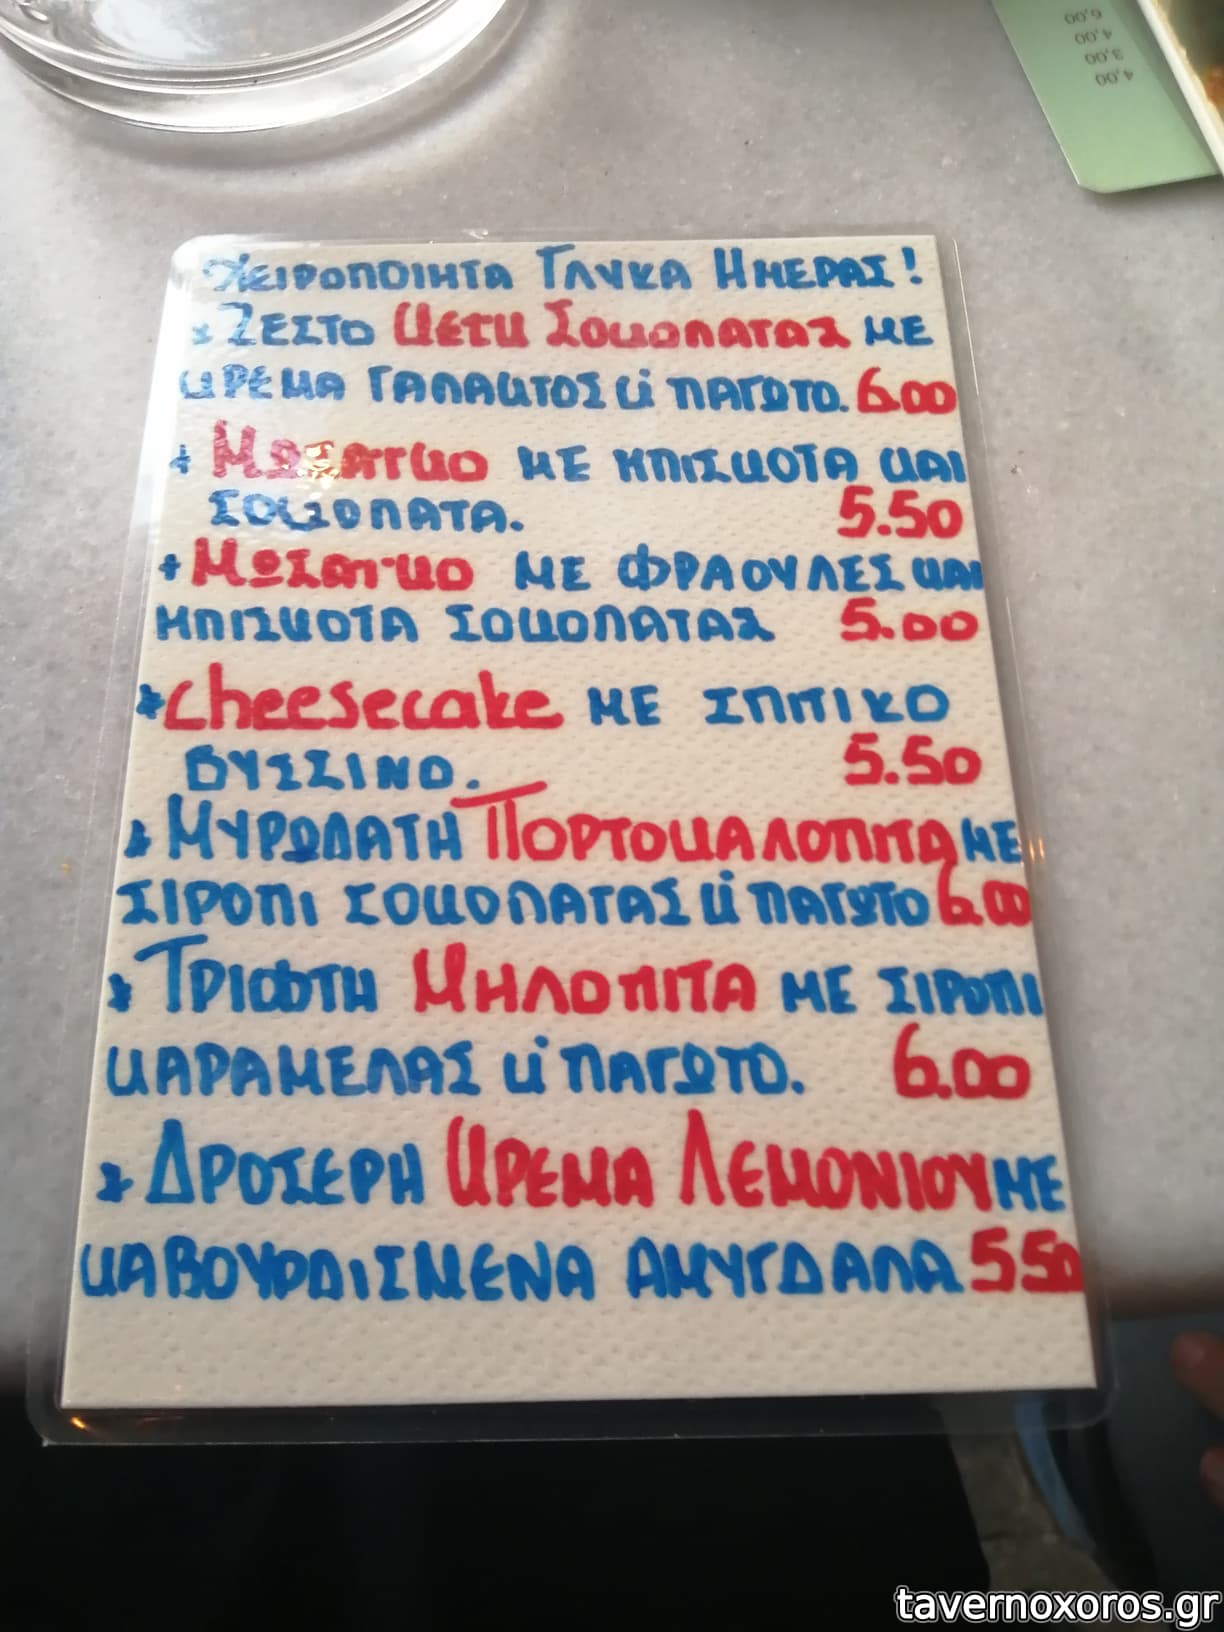 6,00
4,00
3,00
4,00
Χειροποιητα Γλυκα Ημερας!
* Ζεστο Κεικ Σοκολατας με
κρεμα γαλακτος κ' παγωτο. 6.00
+ Μωσαικο με μπισκοτα και
σοκολατα. 5.50
+ Μωσαικο με φραουλες και
μπισκοτα σοκολατας 5.00
* Cheesecake με σπιτικο
βυσσινο. 5.50
* Μυρωδατη Πορτοκαλοπιτα με
σιροπι σοκολατας κ' παγωτο 6.00
* Τριφτη Μηλοπιτα με σιροπι
καραμελας κ' παγωτο. 6.00
* Δροσερη Κρεμα Λεμονιου με
καβουρδισμενα αμυγδαλα 5.50
tavernoxoros.gr